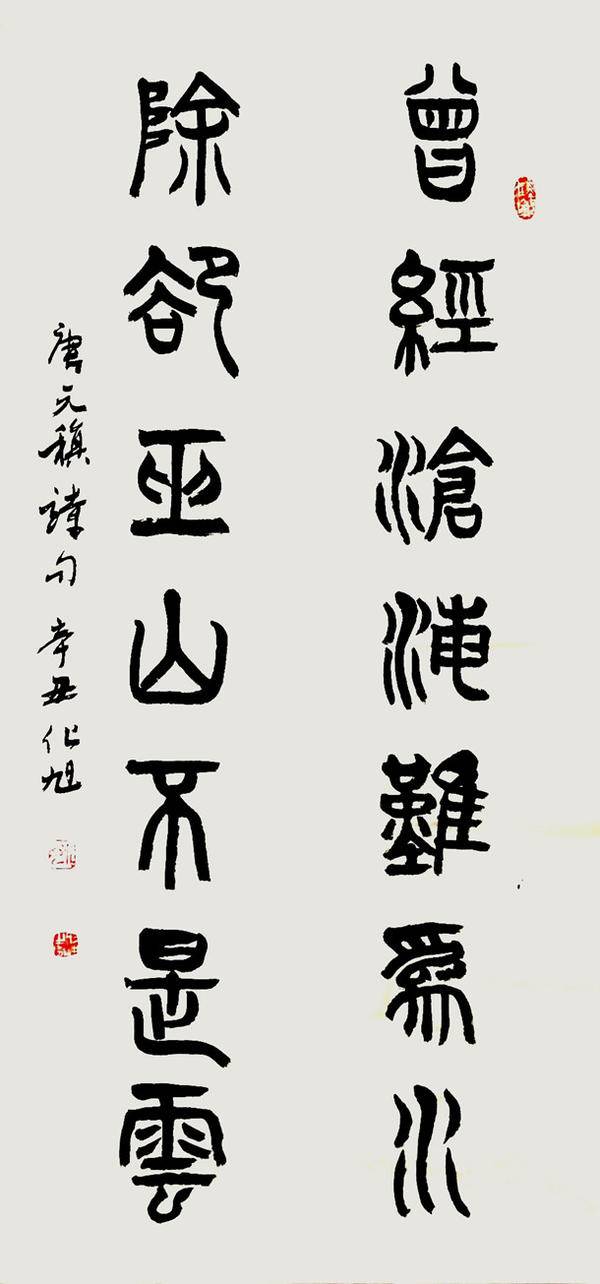 曾經滄海難爲水
除卻巫山不是雲
唐元稹詩句 辛丑 化旭